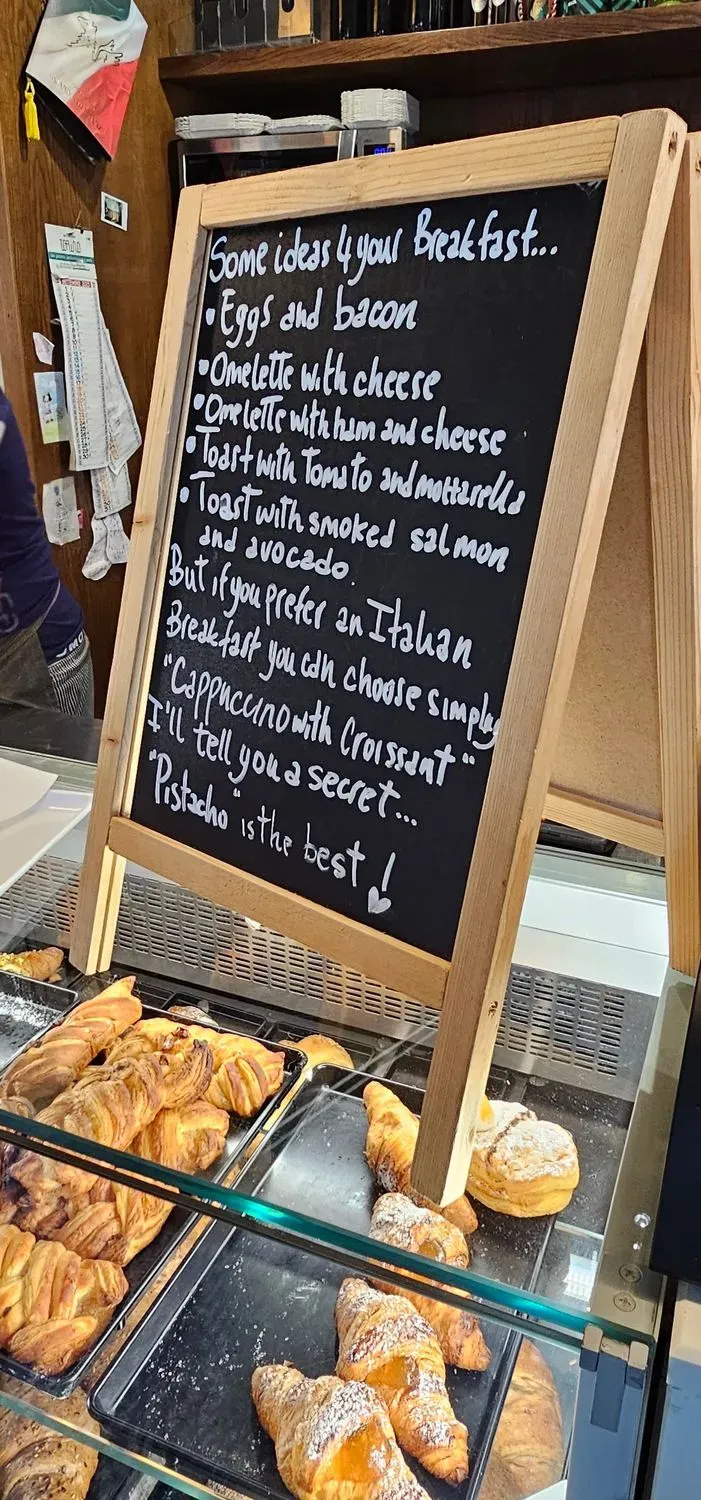 Some ideas 4 your Breakfast...
• Eggs and bacon
• Omelette with cheese
• Omelette with ham and cheese
• Toast with Tomato and mottarella
• Toast with smoked salmon
and avocado.
But if you prefer an Italian
Breakfast you can choose simply
"Cappuccino with Croissant"
I'll tell you a secret...
"Pistacho" is the best!